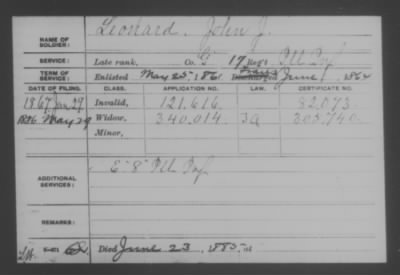 NAME OF SOLDIER: Leonard, John J.
SERVICE: Late rank, Co. G 17 Reg't Ill Inf
TERM OF SERVICE: Enlisted May 25, 1861 Discharged June 1, 1864
DATE OF FILING. CLASS. APPLICATION NO. LAW. CERTIFICATE NO.
1867 Jan 29 Invalid, 121.616 82.073
1886 May 29 Widow, 340.014 205.740
Minor,
ADDITIONAL SERVICES: E 8 Ill Inf
REMARKS:
Died June 23, 1885, at